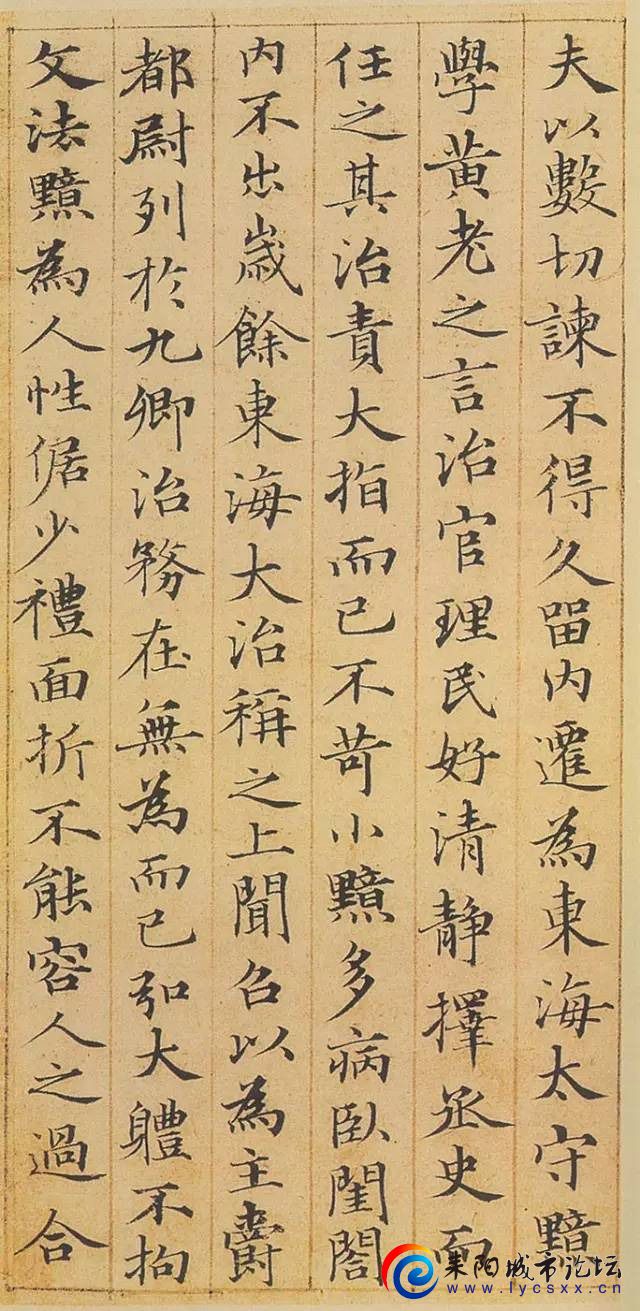 夫以數切諫不得久留内遷為東海太守黯
學黄老之言治官理民好清靜擇丞史而
任之其治責大指而已不苛小黯多病卧閨閤
内不出歲餘東海大治稱之上聞召以為主爵
都尉列於九卿治務在無為而已弘大軆不拘
文法黯為人性倨少禮面折不能容人之過合
耒阳城市论坛
www.lycsxx.cn